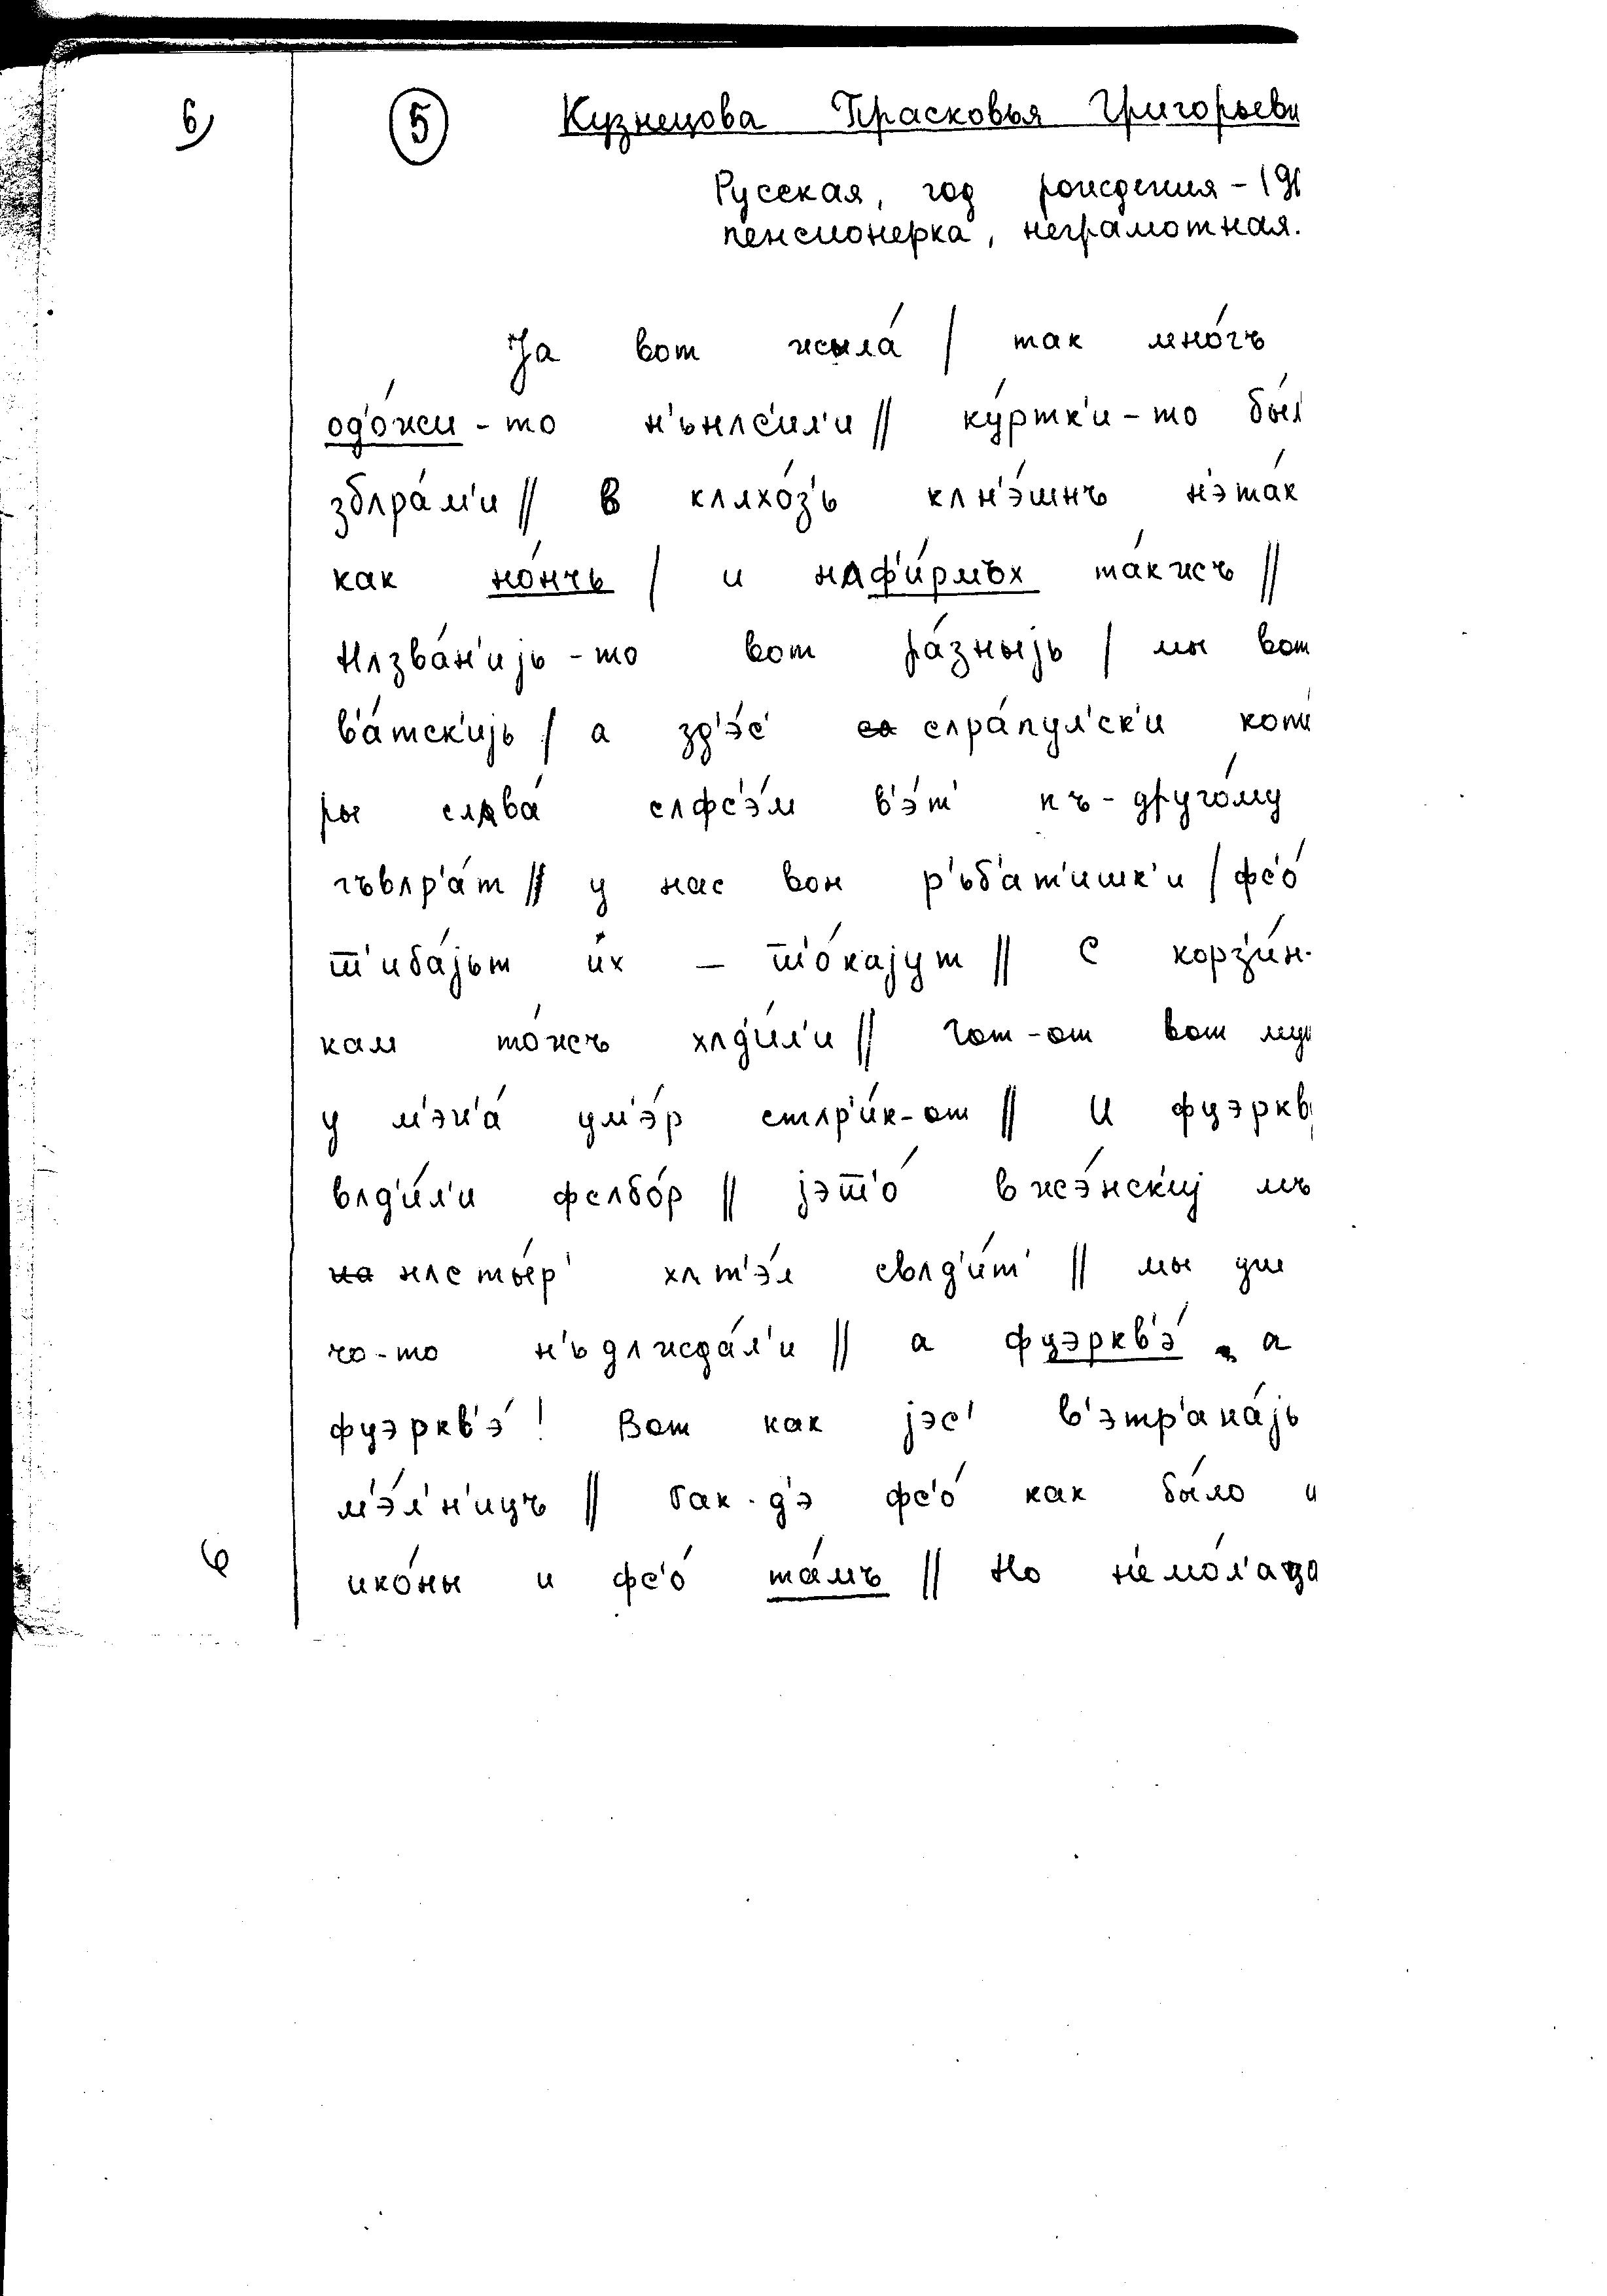 6) ⑤ Кузнецова Прасковья Григорьевн
Русская, год рождения - 191
пенсионерка, неграмотная.
Jа вот жыла́ / так мно́гъ
од'о́жи-то н'ънʌс'ил'и // ку́ртк'и-то был
збʌра́м'и // в кʌлхо́з'ь кʌн'э́шнъ н'эта́к
как но́нчь / и нʌф'и́рмъх та́кжъ //
Нʌзва́н'иjь-то вот ра́зныjь / мы вот
в'а́тск'иjь / а зд'э́с' сʌра́пул'ск'и кото́
ры слʌва́ сʌфс'э́м в'э́т' пъ-друго́му
гъвʌр'а́т // у нас вон р'ъб'ат'ишк'и / фс'о́
т̅'иба́jьт и́х – т̅'о́каjут // С корз'и́н-
кам то́жъ хʌд'и́л'и // Гот-от вот
у м'эн'а́ ум'э́р стʌр'и́к-от // И фцэркв
вʌд'и́л'и фсʌбо́р // jэт̅'о́ в жэ́нск'иj мъ
нʌсты́р' хʌт'э́л свʌд'и́т' // мы уш
чо-то н'ъдʌжда́л'и // а фцэркв'э́ а
фцэркв'э́! Вот как jэс' в'этр'ана́jь
м'э́л'н'ицъ // Так-д'э фс'о́ как бы́ло и
6 ико́ны и фс'о́ та́мъ // Но н'емо́л'аца